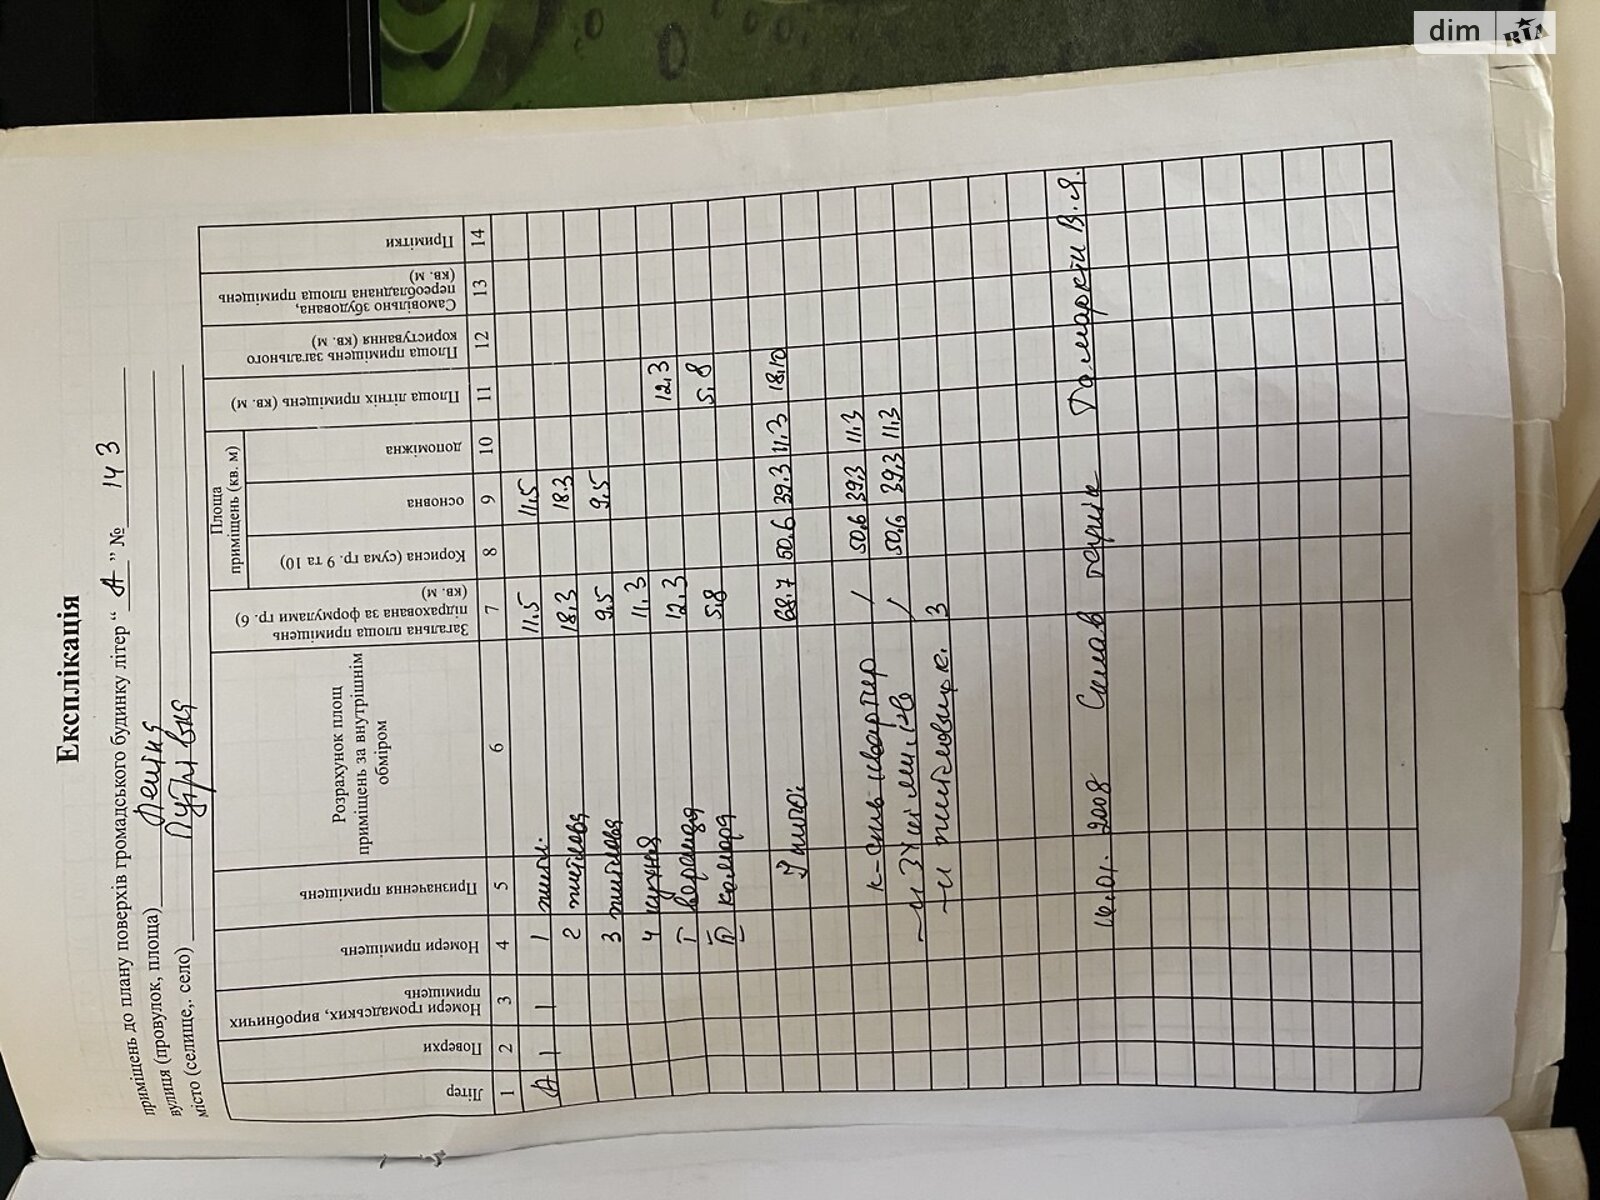 dim RIA
Експлікація
приміщень до плану поверхів громадського будинку літер “ А ” № 143
вулиця (провулок, площа) Леніна
місто (селище,. село)
Літер
Поверхи
Номери громадських, виробничих приміщень
Номери приміщень
Призначення приміщень
Розрахунок площ приміщень за внутрішнім обміром
Загальна площа приміщень підрахована за формулами гр. 6) (кв. м)
Площа приміщень (кв. м)
Корисна (сума гр. 9 та 10)
основна
допоміжна
Площа літніх приміщень (кв. м)
Площа приміщень загального користування (кв. м)
Самовільно збудована, переобладнана площа приміщень (кв. м)
Примітки
1 2 3 4 5 6 7 8 9 10 11 12 13 14
А 1 1 1 житл. 11,5 11,5
2 житлова 18,3 18,3
3 житлова 9,5 9,5
4 кухня 11,3
І веранда 12,3 12,3
ІІ комора 5,8 5,8
68,7 50,6 39,3 11,3 18,10
к-сть квартир 1 50,6 39,3 11,3
1 50,6 39,3 11,3
3
16.01. 2008 Склав технік В.Я.